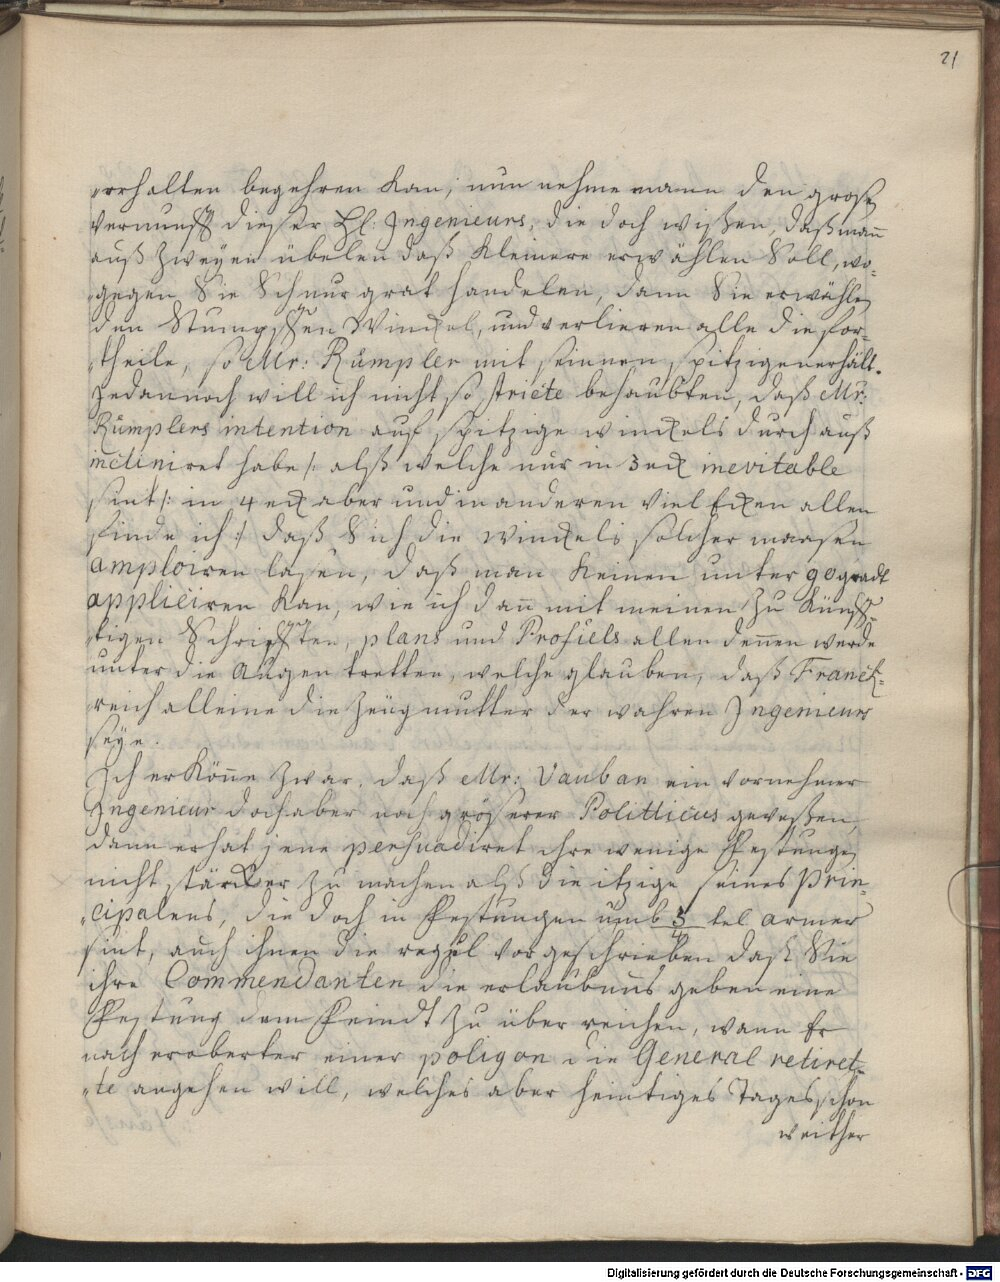 21
erhalten begehren kan; nun nehme mann den grose
Vernunfft dieser HH: Ingenieurs, die doch wißen, daß mañ
auß Zweyen übelen daß Kleinere erwählen Soll, wo-
gegen Sie Schnurgrat handelen, dann Sie erwählen
den Stumpffen Winckel, und verlieren alle die for-
theile, so Mr: Rümpler mit seinnen spitzigen erhält.
Jedannoch will ich nicht so stricte behaubten, daß Mr:
Rümplers intention auf spitzige winckels durch auß
incliniret habe /: alß welche nur in 3 eck inevitable
sint /: in 4 eck aber und in anderen Viel Ecken allen
finde ich :/ daß Sich die winckels solcher maasen
amploiren lasen, daß man Keinen unter 90 gradt
appliciren Kan, wie ich dañ mit meinen Zu Künff-
tigen Schrifften, plans und Profiels allen denen werde
unter die Augen tretten, welche glauben, daß Franck-
reich alleine die Zeügmutter der wahren Ingenieurs
seye.
Ich erKöñe Zwar, daß Mr: Vauban ein vornehmer
Ingenieur doch aber noch gröserer Politticus geweßen,
dann er hat jene persuadiret ihre wenige Festungen
nicht stärcker Zu machen alß die itzige seines Prin-
cipalens, die doch in Festungen umb 3/4 tel armer
sint, auch ihnen die regul Vorgeschrieben daß Sie
ihre Commendanten die erlaubnus geben eine
Festung dem Feindt Zu über reichen, wann Er
nach eroberter einer poligon die General retiret-
te angehen will, welches aber heintiges Tages schon
weither
Digitalisierung gefördert durch die Deutsche Forschungsgemeinschaft - DFG